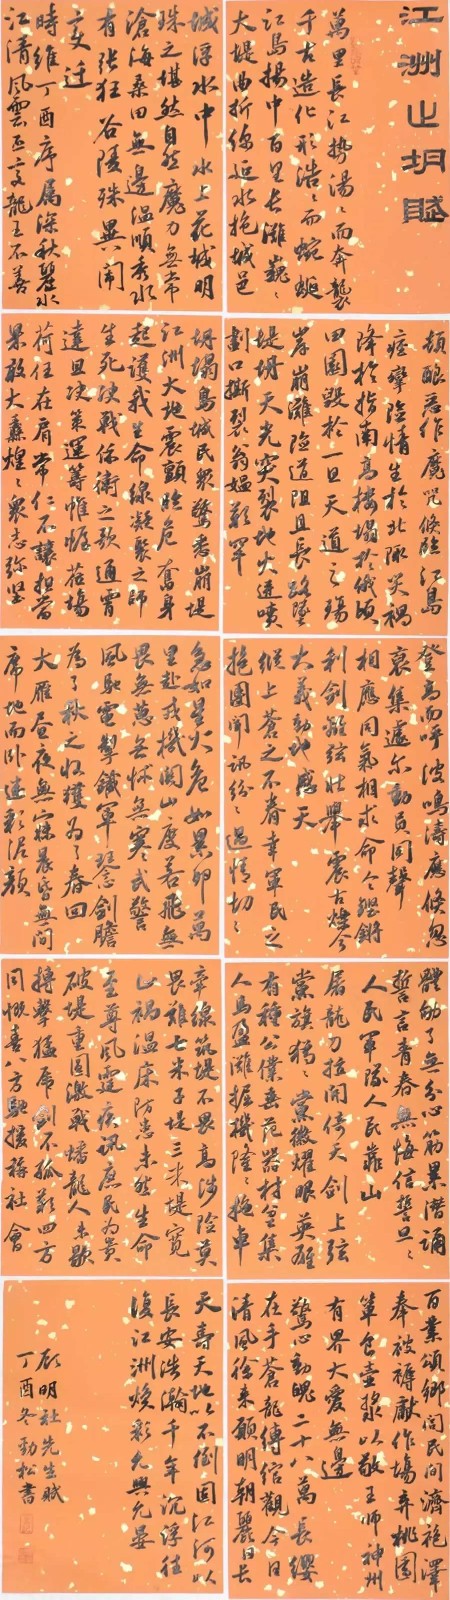 江洲之坍賦
萬里長江勢湯〻而奔襲
千古造化形浩〻而蜿蜒
江島揚中百里長灘巍〻
大堤曲折綿延水抱城邑
城浮水中水上花城明
珠之堪然自然魔力無常
滄海桑田無邊溫順秀水
有張狂谷陵殊異開
變遷
時維丁酉序屬深秋碧水
江清風雲丕變龍王不善
頻釀惡作魔咒倏臨江島
痙攣險情生於北隊災禍
降於指南高樓塌於俄頃
田園毀於一旦天道之殤
岸崩灘險道阻且長路墜
堤坍天光突裂地火迸噴
劃口撕裂翁媼歎罕
坍塌島城民衆驚悉崩堤
江洲大地震顫臨危奮身
起護我生命線凝聚之師
生死決戰保衛之歌通宵
達旦決策運籌帷幄蒞場
荷任在肩當仁不讓担當
果敢大纛煌〻衆志弥堅
登高而呼波鳴濤應倏忽
裒集遽尔動員同聲
相應同氣相求命令鏗鏘
利劍離弦壯舉震古爍今
大義動地感天
縱上蒼之不眷幸軍民之
抱團聞訊紛〻邊情切〻
急如星火危如累卵萬
里赴戎機關山度若飛無
畏無葸無怵無寒弋警
風馳電掣鐵軍琴心劍膽
為了秋之收獲為了春回
大雁晝夜無寐晨昏無間
席地而卧迷彩泥顏
體劬了無分心筋累潛誦
誓言青春無悔信誓旦〻
人民軍隊人民靠山
屠龍刀拉開倚天劍上弦
黨旗獵〻黨徽耀眼英雄
有種公僕垂范器材全集
人馬盈灘握機隆〻拖車
牽線筑堤不畏高涉險莫
畏難七米子堤三米堤寬
止禍溫床防患未然生命
至尊風霆疾訊庶民為貴
破堤重固激戰蟠龍人未歇
搏擊猛虎劍不孤歎四方
同慨喜八方馳援福社會
百業頌鄉閭民間濟袍澤
奉被褥獻作場弃桃園
簞食壺漿以敬王師神州
有界大愛無邊
驚心動魄二十八萬長纓
在手蒼龍縛倌觀今日
清風徐來願明朝麗日長
天壽天地以不倒固江河以
長安浩瀚千年沉浮往
復江洲煥彩允興允晏
顧明社先生賦
丁酉冬勁松書